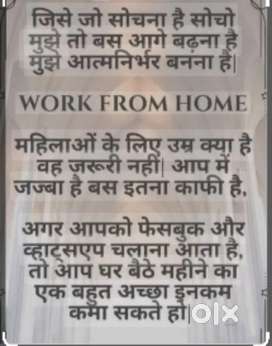 जिसे जो सोचना है सोचो
मुझे तो बस आगे बढ़ना है
मुझे आत्मनिर्भर बनना है|
WORK FROM HOME
महिलाओं के लिए उम्र क्या है
वह जरूरी नहीं| आप में
जज्बा है बस इतना काफी है,
अगर आपको फेसबुक और
व्हाट्सएप चलाना आता है,
तो आप घर बैठे महीने का
एक बहुत अच्छा इनकम
कमा सकते हो|
olx